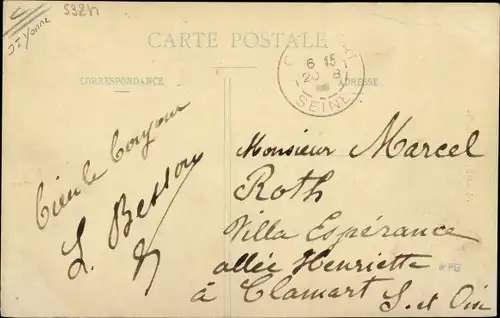 Dt Yonne
532N
CARTE POSTALE
CORRESPONDANCE
ADRESSE
6 15
20 8
SEINE
bien le bonjour
L. Besson
Monsieur Marcel
Roth
Villa Espérance
allée Henriette
à Clamart S. et Oise